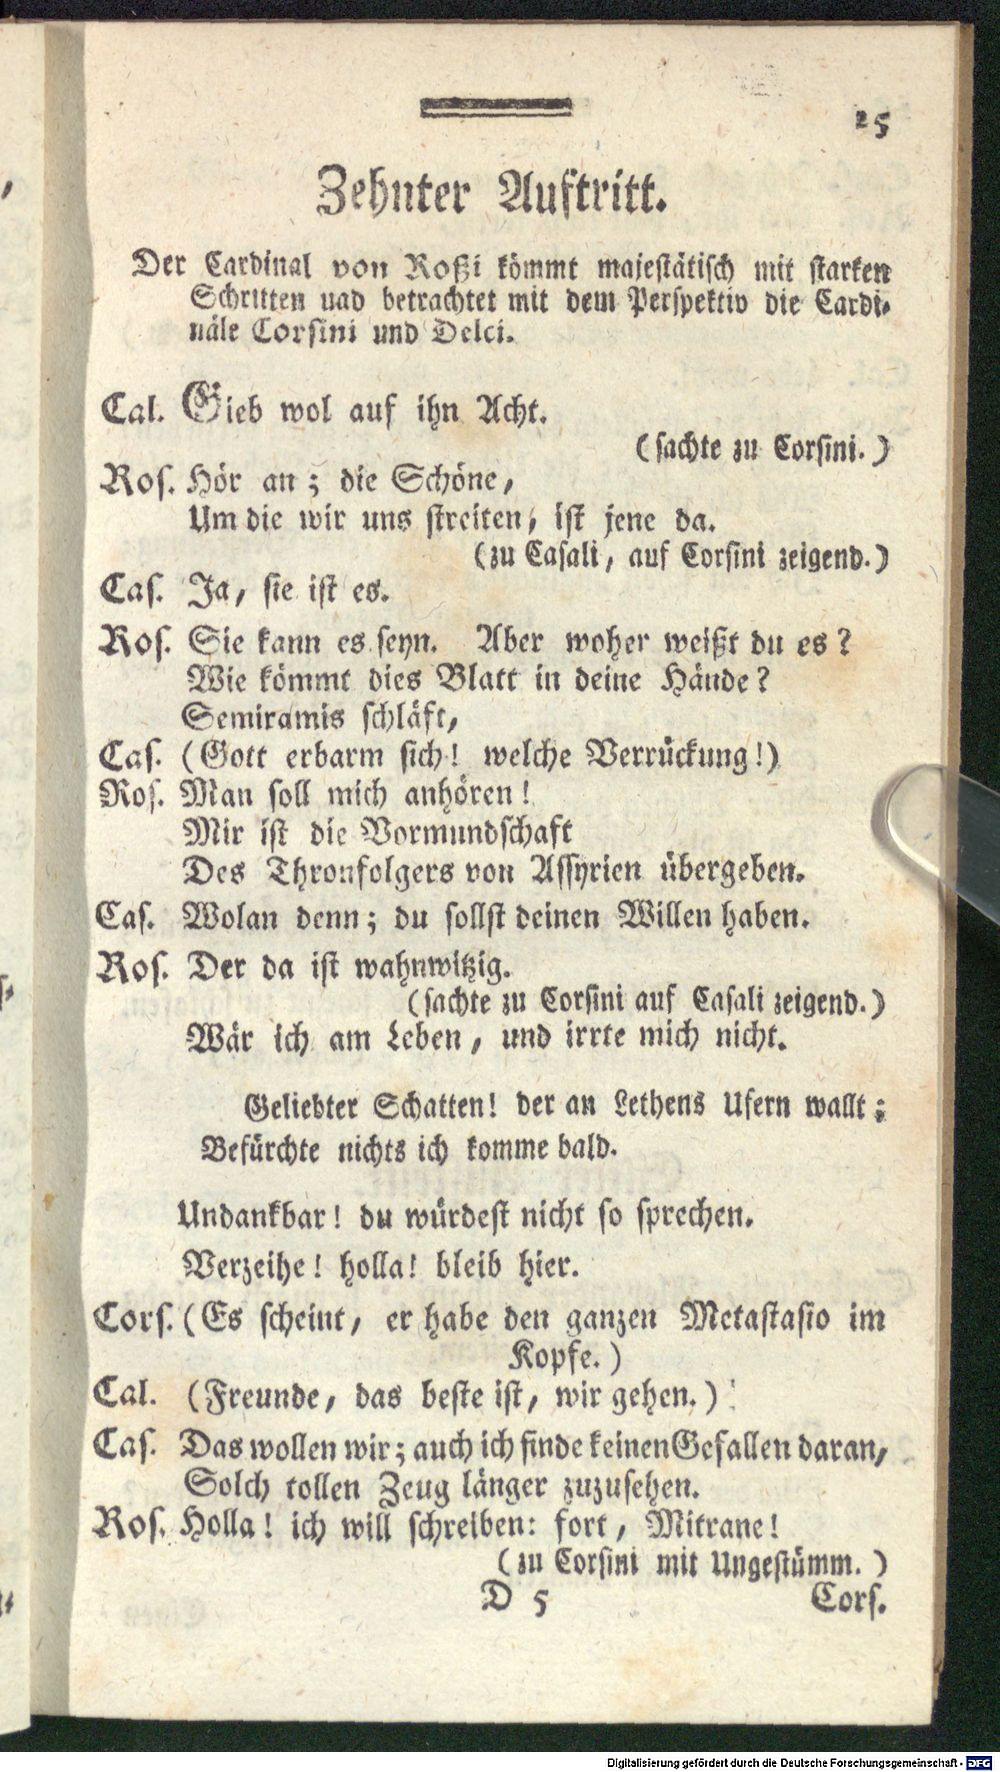 25
Zehnter Auftritt.
Der Cardinal von Roßi kömmt majestätisch mit starken
Schritten uad betrachtet mit dem Perspektiv die Cardi-
näle Corsini und Delci.
Cal. Gieb wol auf ihn Acht.
(sachte zu Corsini.)
Ros. Hör an; die Schöne,
Um die wir uns streiten, ist jene da.
(zu Casali, auf Corsini zeigend.)
Cas. Ja, sie ist es.
Ros. Sie kann es seyn. Aber woher weißt du es?
Wie kömmt dies Blatt in deine Hände?
Semiramis schläft,
Cas. (Gott erbarm sich! welche Verrückung!)
Ros. Man soll mich anhören!
Mir ist die Vormundschaft
Des Thronfolgers von Assyrien übergeben.
Cas. Wolan denn; du sollst deinen Willen haben.
Ros. Der da ist wahnwitzig.
(sachte zu Corsini auf Casali zeigend.)
Wär ich am Leben, und irrte mich nicht.
Geliebter Schatten! der an Lethens Ufern wallt;
Befürchte nichts ich komme bald.
Undankbar! du würdest nicht so sprechen.
Verzeihe! holla! bleib hier.
Cors. (Es scheint, er habe den ganzen Metastasio im
Kopfe.)
Cal. (Freunde, das beste ist, wir gehen.)
Cas. Das wollen wir; auch ich finde keinen Gefallen daran,
Solch tollen Zeug länger zuzusehen.
Ros. Holla! ich will schreiben: fort, Mitrane!
(zu Corsini mit Ungestümm.)
D 5 Cors.
Digitalisierung gefördert durch die Deutsche Forschungsgemeinschaft - DFG